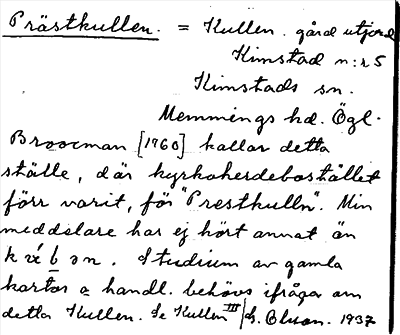 Prästkullen. = Kullen. gård utjord
Kimstad n:r 5
Kimstads sn.
Memmings hd. Ögl.
Broocman [1760] kallar detta
ställe, där kyrkoherdebostället
förr varit, för "Prestkulln". Min
meddelare har ej hört annat än
Studium av gamla
kartor o handl. behövs ifråga om
detta Kullen. Se Kullen III 1937